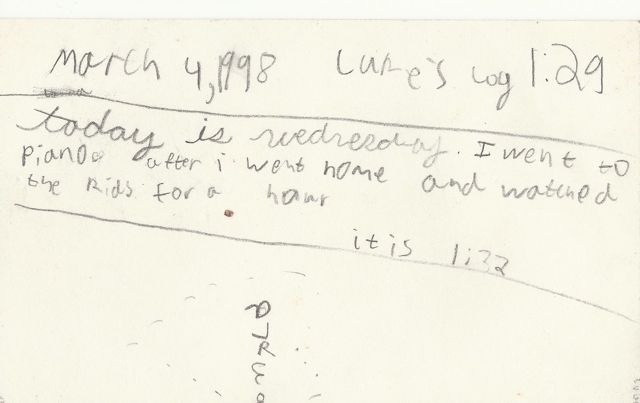 March 4, 1998 Luke's log 1:29
today is wednesday. I went to
piano after i went home and watched
the kids for a hour
it is 1:32